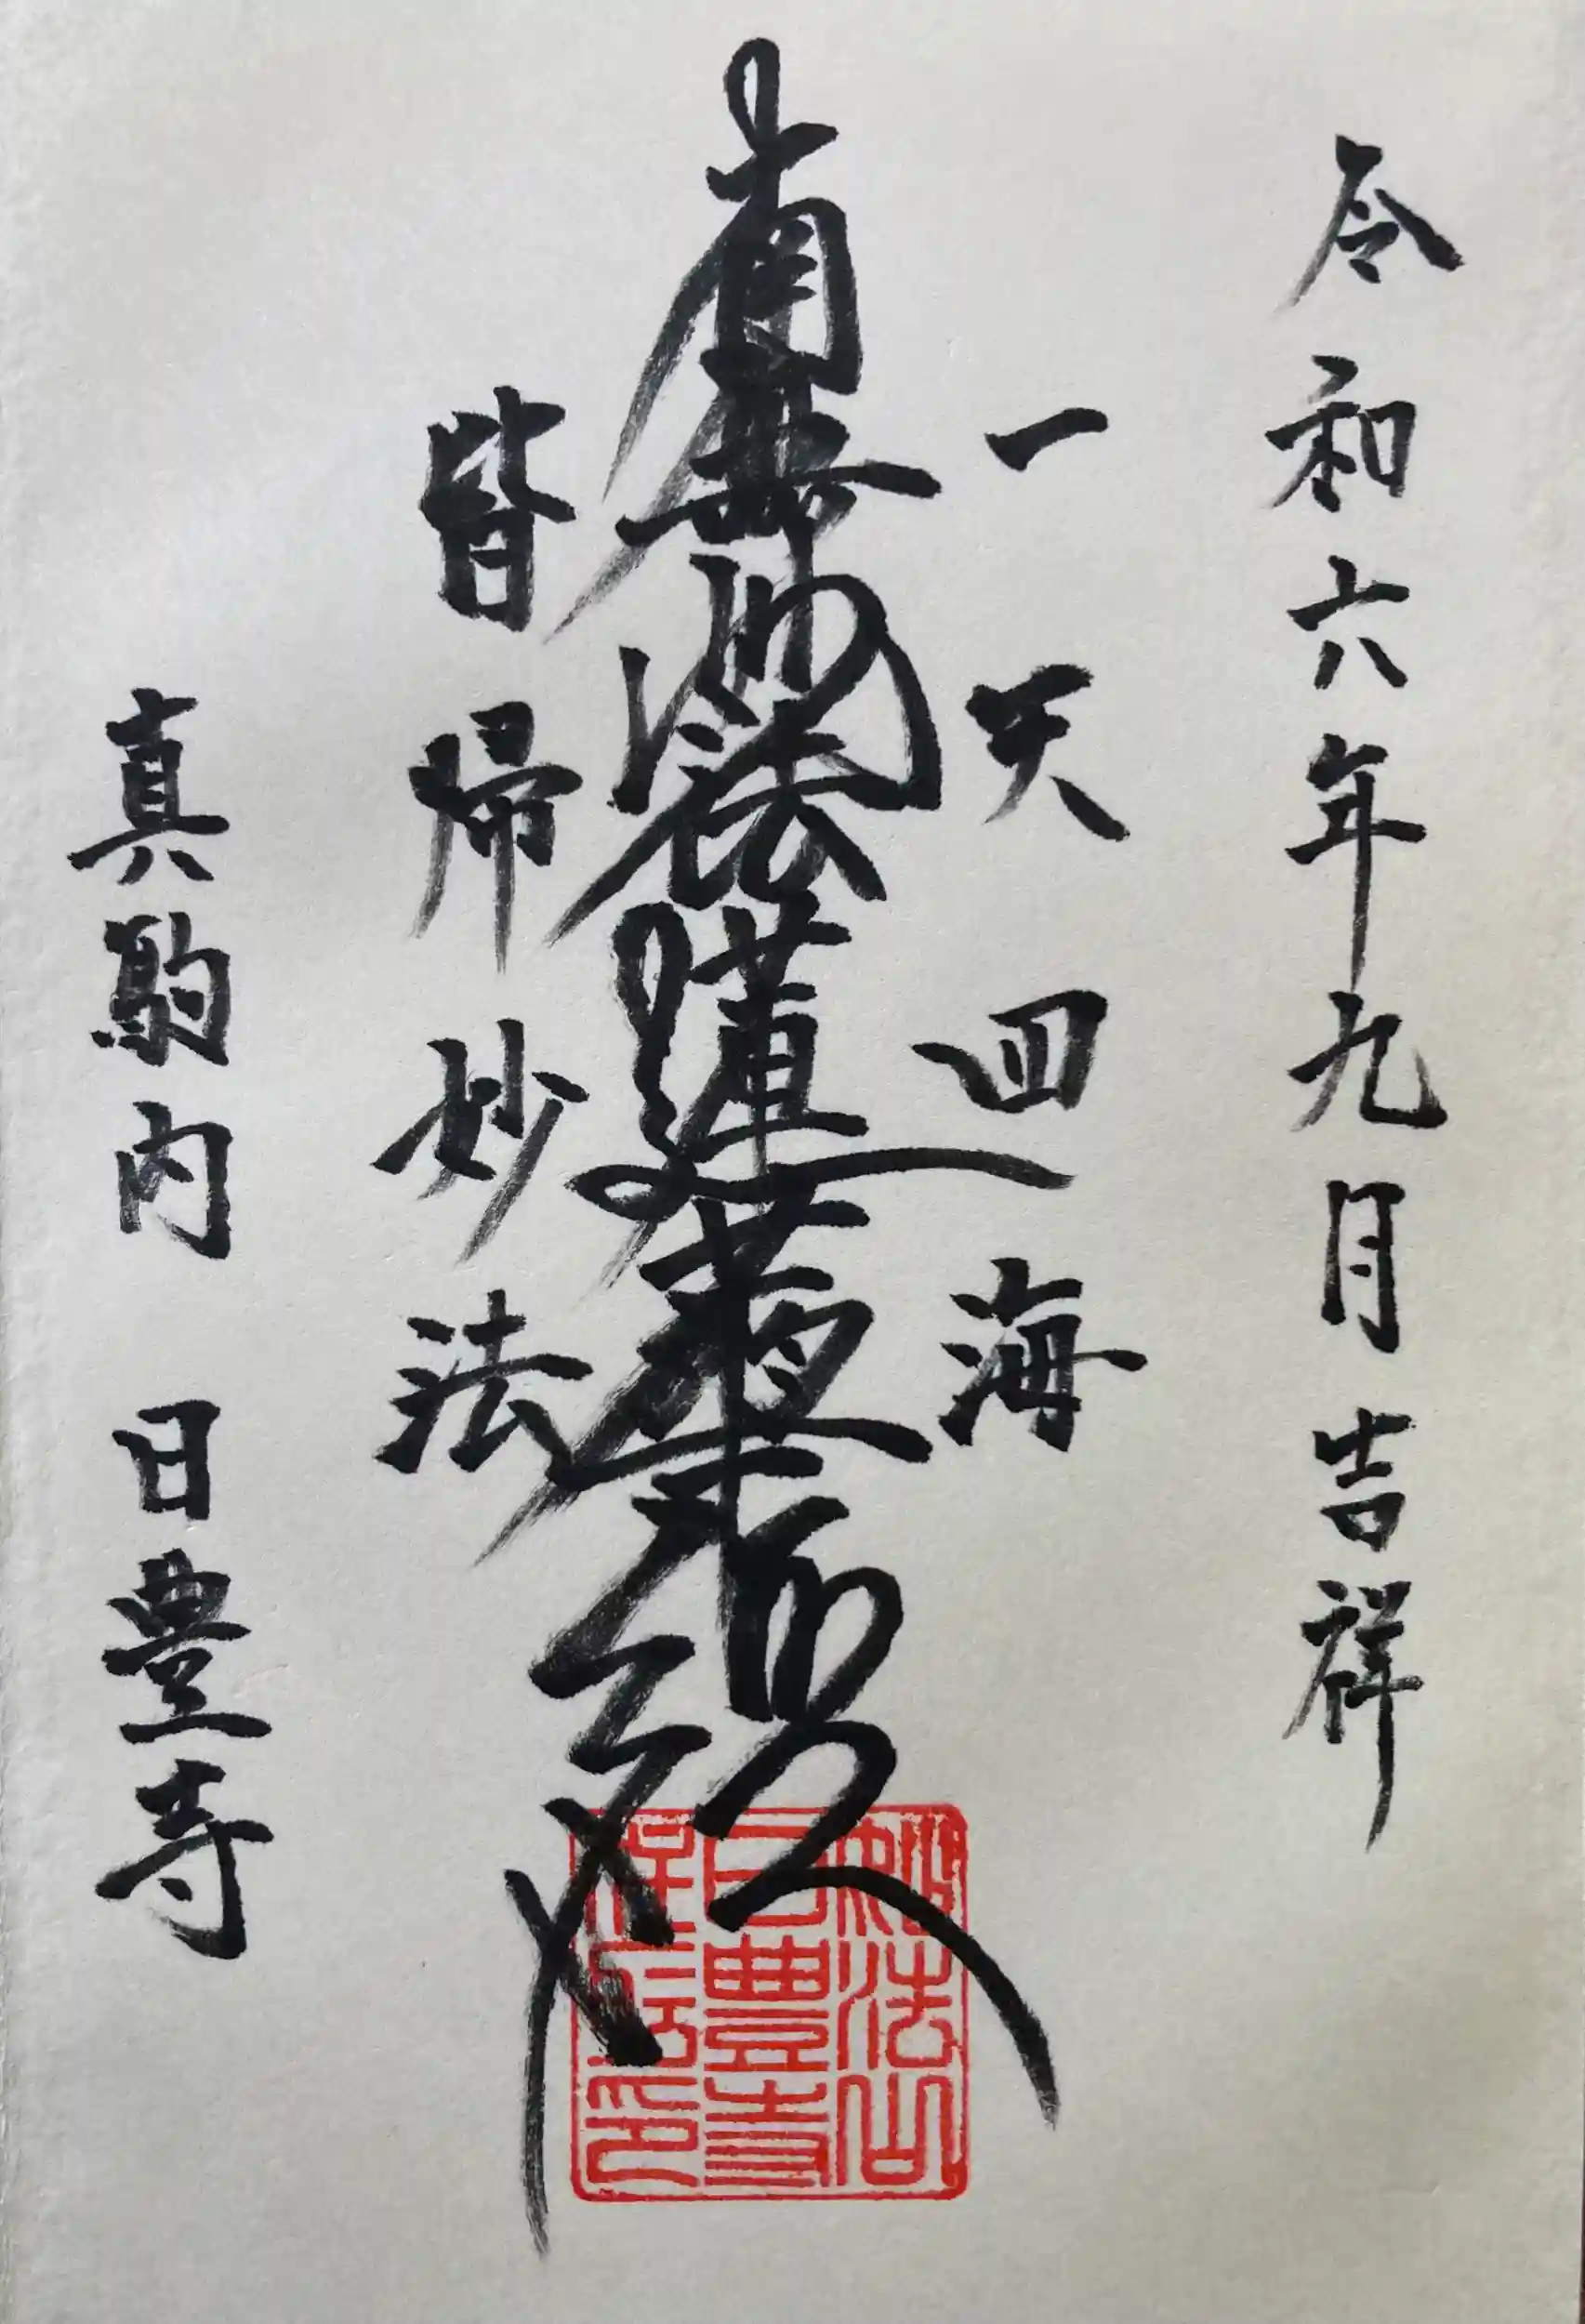 令和六年九月吉祥
一天四海
南無妙法蓮華経
皆帰妙法
真駒内 日豊寺
妙法山
日豊寺